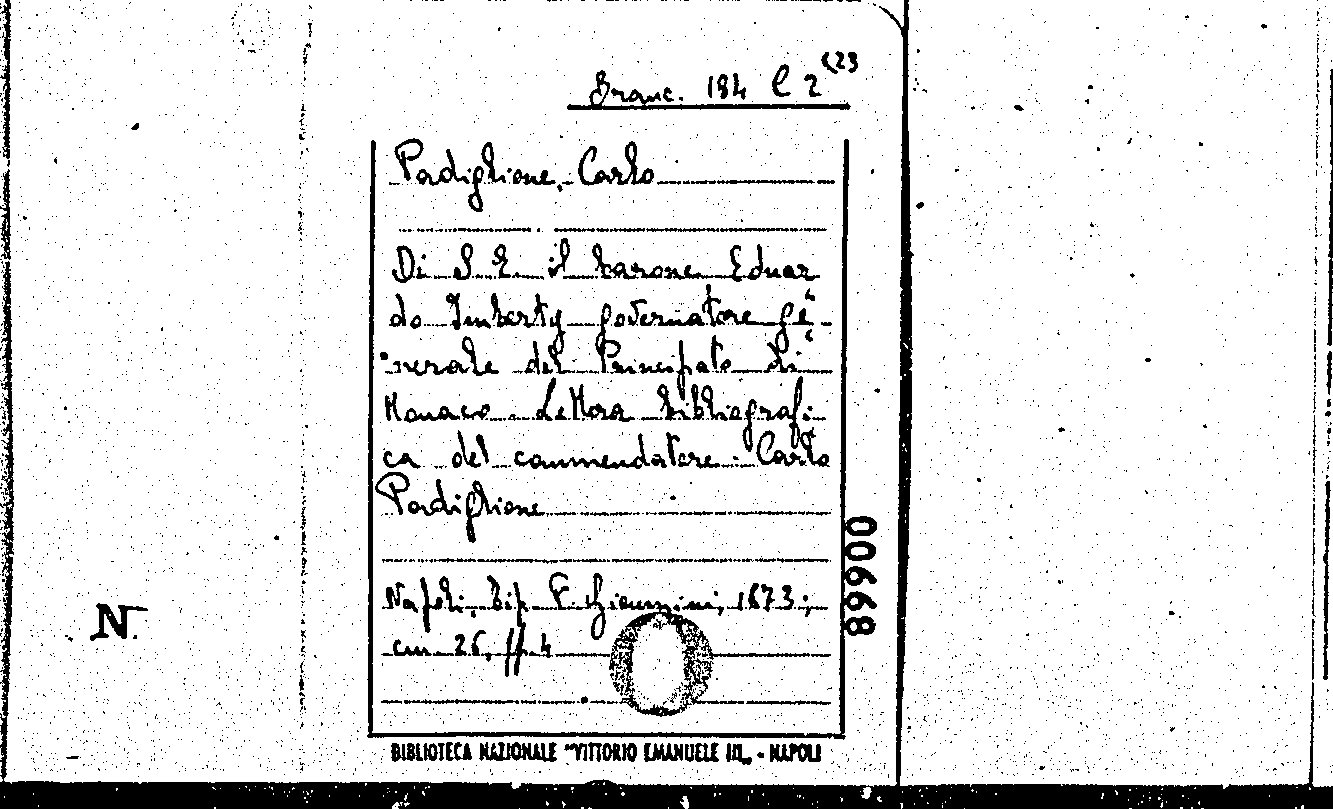 Branc. 184 C 2 (23
Padiglione, Carlo
Di S. E. il barone Eduar
do Imberty governatore ge
nerale del Principato di
Monaco. Lettera bibliografi-
ca del commendatore Carlo
Padiglione
Napoli, Tip. F. Giannini, 1873;
cm 26, ff. 4
00668
N.
BIBLIOTECA NAZIONALE "VITTORIO EMANUELE III„ - NAPOLI